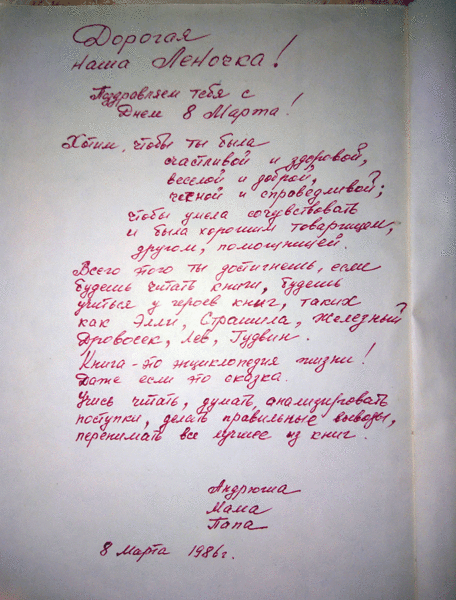 Дорогая
наша Леночка!
Поздравляем тебя с
Днем 8 Марта!
Хотим, чтобы ты была
счастливой и здоровой,
веселой и доброй,
честной и справедливой;
чтобы умела сочувствовать
и была хорошим товарищем,
другом, помощницей.
Всего этого ты достигнешь, если
будешь читать книги, будешь
учиться у героев книг, таких
как Элли, Страшила, Железный
Дровосек, Лев, Гудвин.
Книга - это энциклопедия жизни!
Даже если это сказка.
Учись читать, думать, анализировать
поступки, делать правильные выводы,
перенимать все лучшее из книг.
Андрюша
Мама
Папа
8 Марта 1986г.